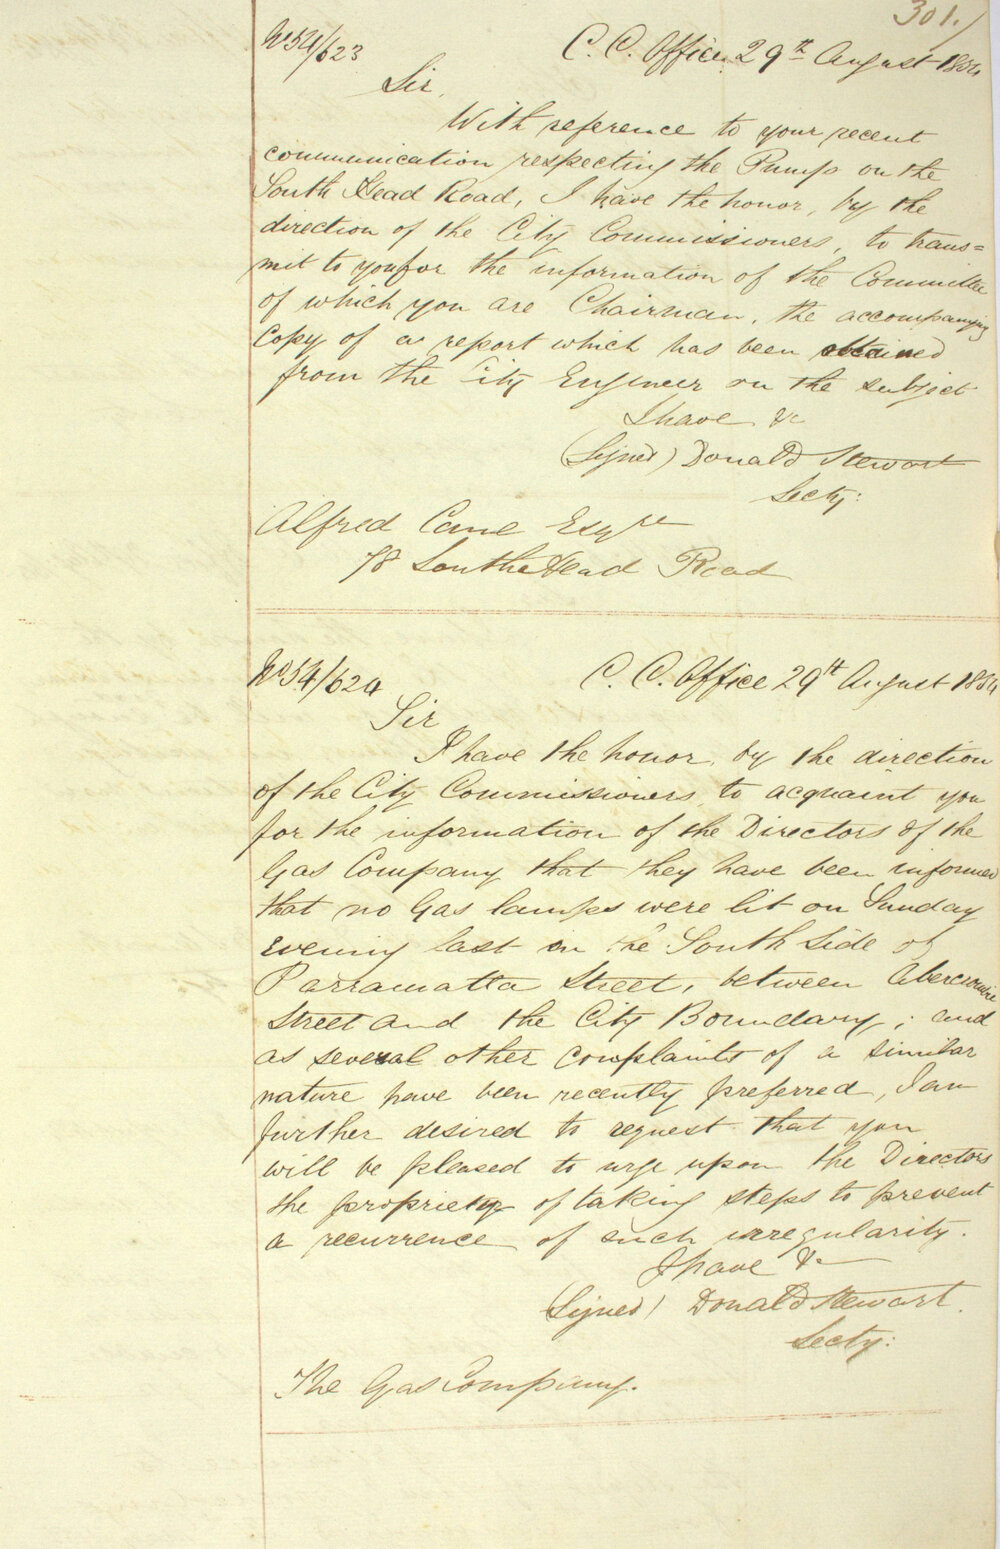 301.
No 54/623
C. C. Office 29th August 1854
Sir,
With reference to your recent
communication respecting the Pump on the
South Head Road, I have the honor, by the
direction of the City Commissioners, to trans=
mit to you for the information of the Committee
of which you are Chairman, the accompanying
Copy of a report which has been obtained
from the City Engineer on the subject
I have &c
(Signed) Donald Stewart
Secty:
Alfred Cane Esqre
78 South Head Road
No 54/624
C. C. Office 29th August 1854
Sir
I have the honor, by the direction
of the City Commissioners, to acquaint you
for the information of the Directors of the
Gas Company that they have been informed
that no Gas lamps were lit on Sunday
evening last on the South Side of
Parramatta Street, between Abercrombie
Street and the City Boundary; and
as several other complaints of a similar
nature have been recently preferred, I am
further desired to request that you
will be pleased to urge upon the Directors
the propriety of taking steps to prevent
a recurrence of such irregularity.
I have &c
(Signed) Donald Stewart.
Secty:
The Gas Company.